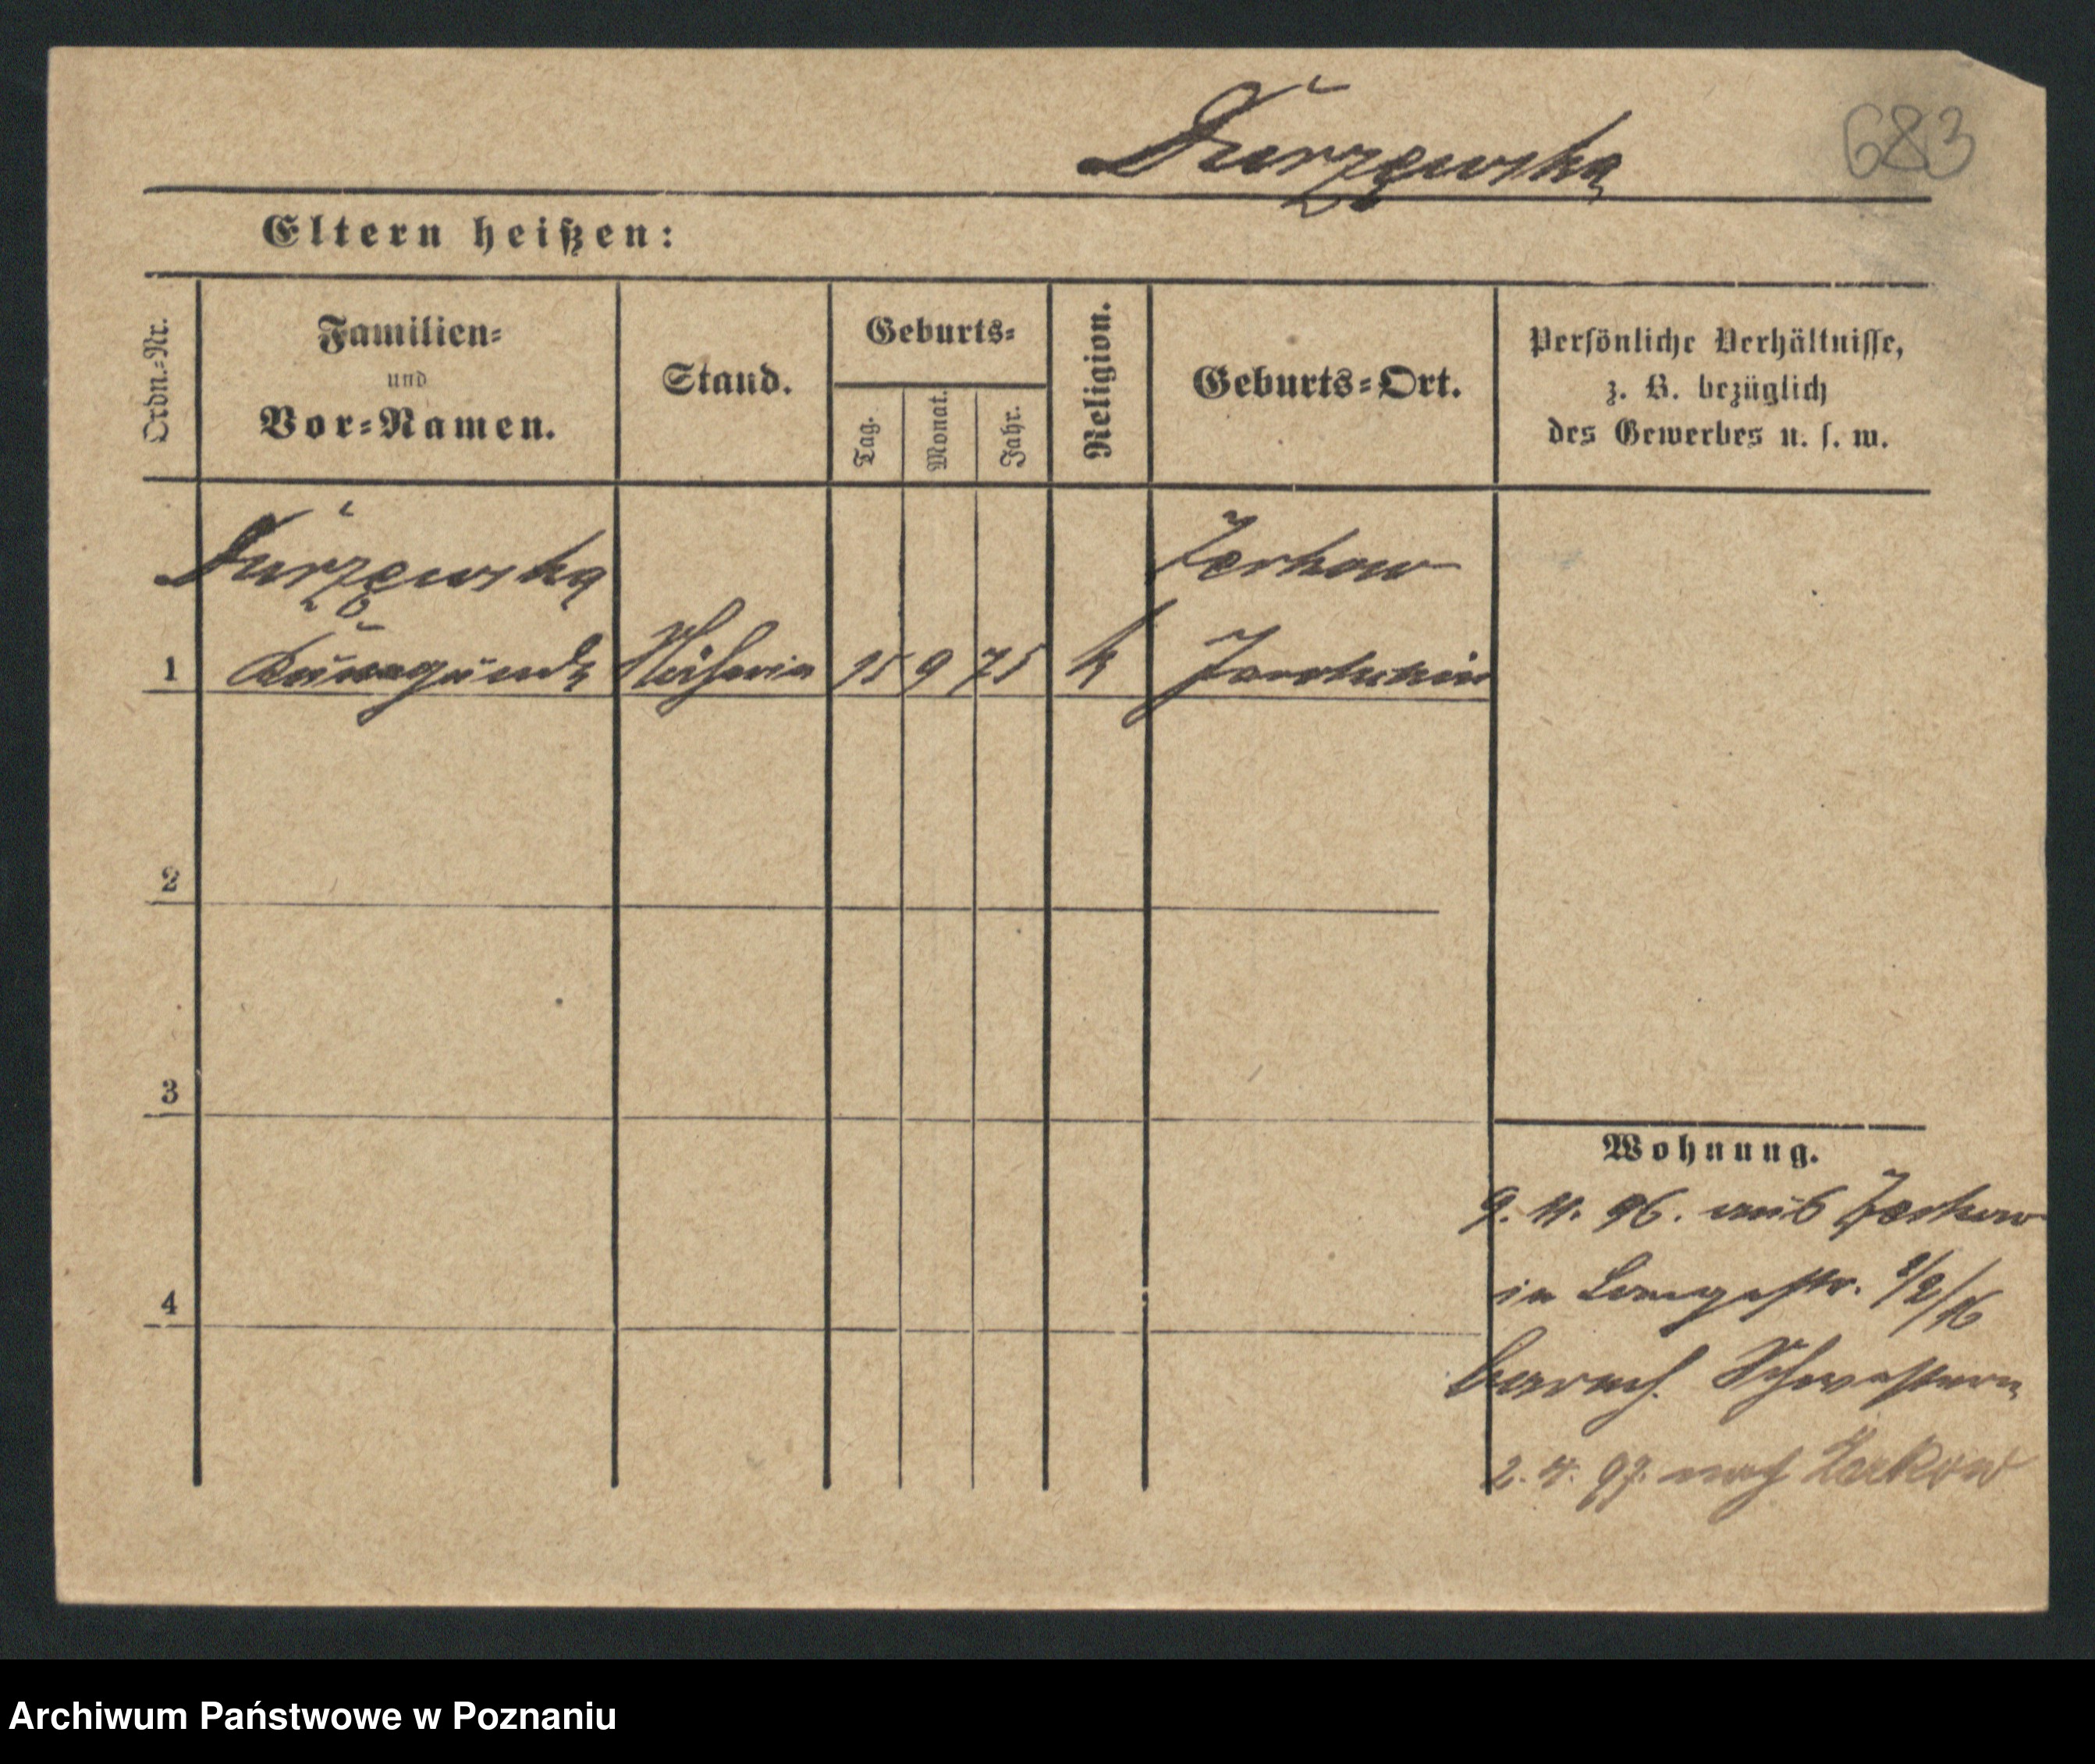 Durzewska 683
Eltern heißen:
Ordn.-Nr.
Familien-
und
Vor-Namen.
Stand.
Geburts-
Tag.
Monat.
Jahr.
Religion.
Geburts-Ort.
Persönliche Verhältnisse,
z. B. bezüglich
des Gewerbes u. s. w.
Zerkow
1 Näherin 15 9 75 k Jarotschin
2
3
4
Wohnung.
9. 11. 96. aus Zerkow
in Langestr.
2. 4. 97. nach Zerkow
Archiwum Państwowe w Poznaniu